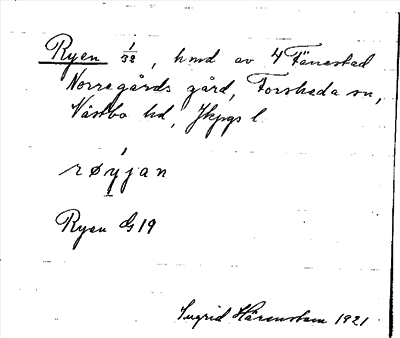 Ryen 1/32, hmd av 4 Fänestad
Norregårds gård, Forsheda sn,
Västbo hd, Jkpgs l.
røyjan
Ryen G 19
Sigrid Härenstam 1921